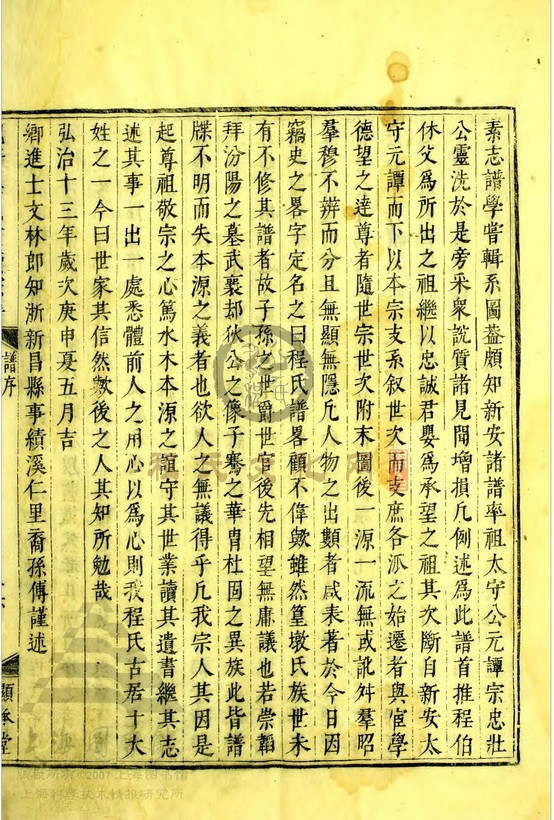 素志譜學嘗輯系圖葢頗知新安諸譜率祖太守公元譚宗忠壯
公靈洗於是旁采衆說質諸見聞增損凡例述爲此譜首推程伯
休父爲所出之祖繼以忠誠君嬰爲承望之祖其次斷自新安太
守元譚而下以本宗支系叙世次而支庶各派之始遷者與宦學
德望之達尊者隨世宗世次附末圖後一源一流無或訛舛羣昭
羣穆不辨而分且無顯無隱凡人物之出顯者咸表著於今日因
竊史之畧字定名之曰程氏譜畧顧不偉歟雖然篁墩氏族世未
有不修其譜者故子孫之世爵世官後先相望無庸議也若崇韜
拜汾陽之墓武襄却狄公之像子騫之華胄杜固之異族此皆譜
牒不明而失本源之義者也欲人之無議得乎凡我宗人其因是
起尊祖敬宗之心篤水木本源之誼守其世業讀其遺書繼其志
述其事一出一處悉體前人之用心以爲心則我程氏古居十大
姓之一今曰世家其信然歟後之人其知所勉哉
弘治十三年歲次庚申夏五月吉
鄉進士文林郎知浙新昌縣事績溪仁里裔孫傅謹述
譜序
顯承堂
版权所有©2007上海图书馆
上海科学技术情报研究所